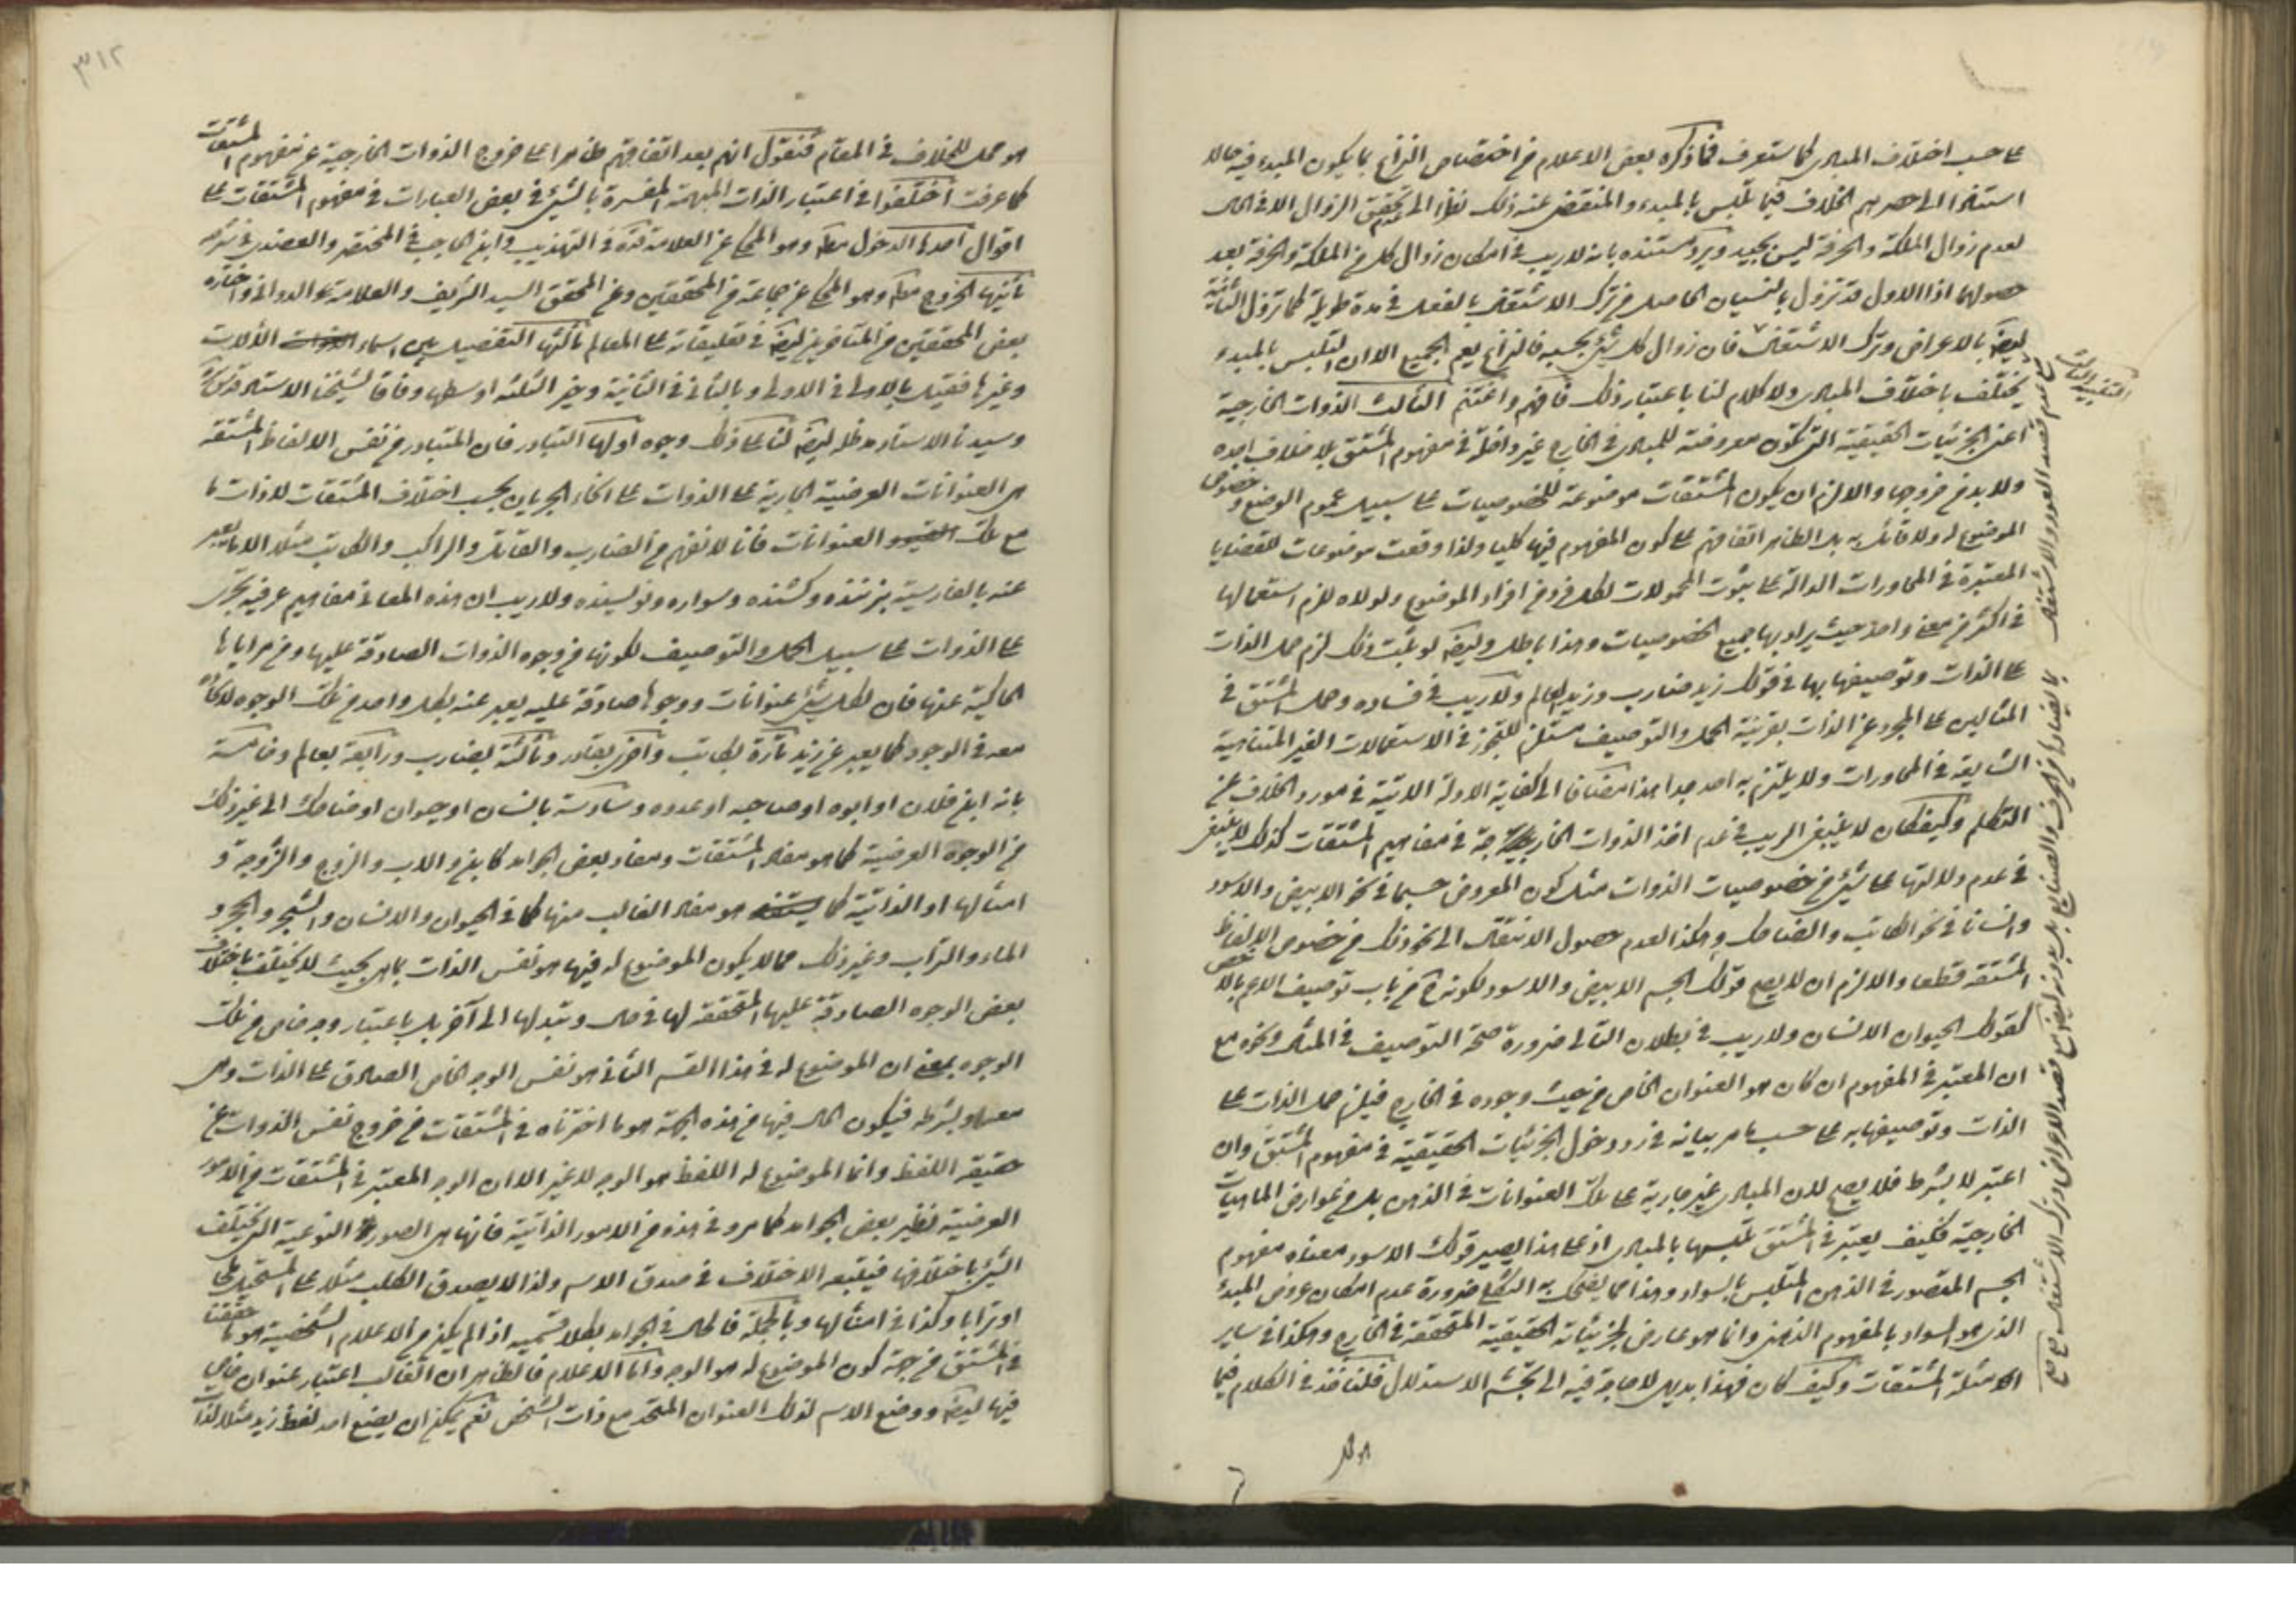 على حسب اختلاف المبادى كما ستعرف فما ذكره بعض الاعلام من اختصاص النزاع بما يكون المبدء فيه حالا
استنادا الى حصرهم الخلاف فيما تلبس بالمبدء والمنقضى عنه ذلك نظرا الى عدم تحقق الزوال الا في الحال
لعدم زوال الملكة والحرفة ليس بجيد ويرد مستنده بانه لا ريب في امكان زوال كل من الملكة والحرفة بعد
حصولهما اذ الاول قد تزول بالنسيان الحاصل من ترك الاشتغال بالفعل في مدة طويلة كما تزول الثانية
ايضا بالاعراض وترك الاشتغال فان زوال كل شيئ بحسبه فالنزاع يعم الجميع الا ان التلبس بالمبدء
يختلف باختلاف المبادى ولا كلام لنا باعتبار ذلك فافهم واغتنم الثالث الذوات الخارجية
اعنى الجزئيات الحقيقية التي تكون معروضة للمبادى في الخارج غير داخلة في مفهوم المشتق بلا خلاف اجده
ولا بد من خروجها والا لزم ان يكون المشتقات موضوعة للخصوصيات على سبيل عموم الوضع وخصوص
الموضوع له ولا قائل به بل الظاهر اتفاقهم على كون المفهوم فيها كليا ولذا وقعت موضوعات للقضايا
المعتبرة في المحاورات الدالة على ثبوت المحمولات لكل فرد من افراد الموضوع ولولاه للزم استعمالها
في اكثر من معنى واحد حيث يراد بها جميع الخصوصيات وهذا باطل وايضا لو ثبت ذلك لزم حمل الذات
على الذات وتوصيفها بها في قولك زيد ضارب وزيد العالم ولا ريب في فساده وحمل المشتق في
المثالين على المجرد عن الذات بقرينة الحمل والتوصيف مستلزم للتجوز في الاستعمالات الغير المتناهية
الشايعة في المحاورات ولا يلتزم به احد جدا هذا مضافا الى كفاية الادلة الاتية في مورد الخلاف عن
التكلم وكيف كان لا ينبغى الريب في عدم اخذ الذوات الخارجية في مفاهيم المشتقات كذلك لا ينبغى
في عدم دلالتها على شيئ من خصوصيات الذوات مثل كون المعروض جسما في نحو الابيض والاسود
وانسانا في نحو الكاتب والضاحك وهكذا لعدم حصول الانتقال الى نحو ذلك من خصوص الالفاظ
المشتقة قطعا والا لزم ان لا يصح قولك الجسم الابيض والاسود لكونه من باب توصيف الاعم بالاخص
كقولك الحيوان الانسان ولا ريب في بطلان التالى ضرورة صحة التوصيف في المثال ونحوه مع
ان المعتبر في المفهوم ان كان هو العنوان الخاص من حيث وجوده في الخارج فيلزم حمل الذات على
الذات وتوصيفها به على حسب ما مر بيانه في رد دخول الجزئيات الحقيقية في مفهوم المشتق وان
اعتبر لا بشرط فلا يصح لان المبادى غير جارية على تلك العنوانات في الذهن بل من عوارض الماهيات
الخارجية فكيف يعتبر في المشتق تلبسها بالمبادى اذ على هذا يصير قولك الاسود معناه مفهوم
الجسم المتصور في الذهن المتلبس بالسواد وهذا مما يضحك به الثكلى ضرورة عدم امكان عروض المبدء
الذى هو السواد بالمفهوم الذهنى وانما هو عارض لجزئياته الحقيقية المتحققة في الخارج وهكذا في ساير
الامثلة المشتقات وكيف كان فهذا بديهى لا حاجة فيه الى تجشم الاستدلال فلنأخذ في الكلام فيما
التنبيه الثالث
٣١٢
هو محل للخلاف في المقام فنقول انهم بعد اتفاقهم ظاهرا على خروج الذوات الخارجية عن مفهوم المشتقات
كما عرفت اختلفوا في اعتبار الذات المبهمة المفسرة بالشيئ في بعض العبارات في مفهوم المشتقات على
اقوال احدها الدخول مطلقا وهو المحكى عن العلامة قده في التهذيب وابن الحاجب في المختصر والعضدى في شرحه
ثانيها الخروج مطلقا وهو المحكى عن جماعة من المحققين وعن المحقق السيد الشريف والعلامة الدوانى واختاره
بعض المحققين من المتاخرين ايضا في تعليقاته على المعالم ثالثها التفصيل بين اسماء الالات
وغيرها فقيل بالاول في الاولى وبالثانى في الثانية وخير الثلثة اوسطها وفاقا لشيخنا الاستاد قدس سره
وسيدنا الاستاد دام ظله ايضا لنا على ذلك وجوه اولها التبادر فان المتبادر من نفس الالفاظ المشتقة
هى العنوانات العرضية الجارية على الذوات على انحاء الجريان بحسب اختلاف المشتقات لا ذوات ما
مع تلك العنوانات فانا لا نفهم من الضارب والقاتل والراكب والكاتب مثلا الا ما يعبر
عنه بالفارسية بزننده وكشنده وسواره ونويسنده ولا ريب ان هذه المعانى مفاهيم عرفية تجرى
على الذوات على سبيل الحمل والتوصيف لكونها من وجوه الذوات الصادقة عليها ومن مراياها
الحاكية عنها فان لكل شيئ عنوانات ووجوها صادقة عليه يعبر عنه بكل واحد من تلك الوجوه لاتحاده
معه في الوجود كما يعبر عن زيد تارة بكاتب واخرى بقادر وثالثة بضارب ورابعة بعالم وخامسة
بانه ابن فلان او ابوه او صاحبه او عدوه وسادسة بانسان او حيوان او ضاحك الى غير ذلك
من الوجوه العرضية كما هو مفاد المشتقات ومفاد بعض الجوامد كابن والاب والزوج والزوجة و
امثالها او الذاتية كما هو مفاد الغالب منها كما في الحيوان والانسان والشجر والحجر و
الماء والتراب وغير ذلك مما لا يكون الموضوع له فيها هو نفس الذات بما هى بحيث لا يختلف باختلاف
بعض الوجوه الصادقة عليها المتحققة لها في حال وتبدلها الى آخر بل باعتبار وجه خاص من تلك
الوجوه بمعنى ان الموضوع له في هذا القسم الثانى هو نفس الوجه الخاص الصادق على الذات وهى
معها وبشرطه فيكون الحال فيها من هذه الجهة هو ما اخترناه في المشتقات من خروج نفس الذوات عن
حقيقة اللفظ وانما الموضوع له اللفظ هو الوجه لا غير الا ان الوجه المعتبر في المشتقات من الامور
العرضية نظير بعض الجوامد كما مر وفي هذه من الامور الذاتية فانها هى الصور النوعية التى يختلف
الشيئ باختلافها فيتبعه الاختلاف في صدق الاسم ولذا لا يصدق الكلب مثلا على المستحيل ملحا
او ترابا وكذا في امثالها وبالجملة فالحال في الجوامد بكلا قسميه اذا لم يكن من الاعلام الشخصية هو ما حققنا
في المشتق من جهة كون الموضوع له هو الوجه واما الاعلام فالظاهر ان الغالب اعتبار عنوان خاص
فيها ايضا ووضع الاسم لذلك العنوان المتحد مع ذات الشخص نعم يمكن ان يضع احد لفظ زيد مثلا لذات